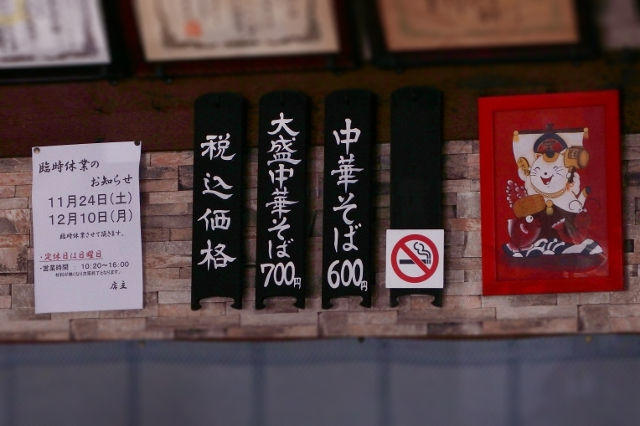 臨時休業の
お知らせ
11月24日(土)
12月10日(月)
臨時休業させて頂きます。
・定休日は日曜日
・営業時間 : 10:20～16:00
材料が無くなり次第終了となります。
店主
税込価格
大盛中華そば
700円
中華そば
600円